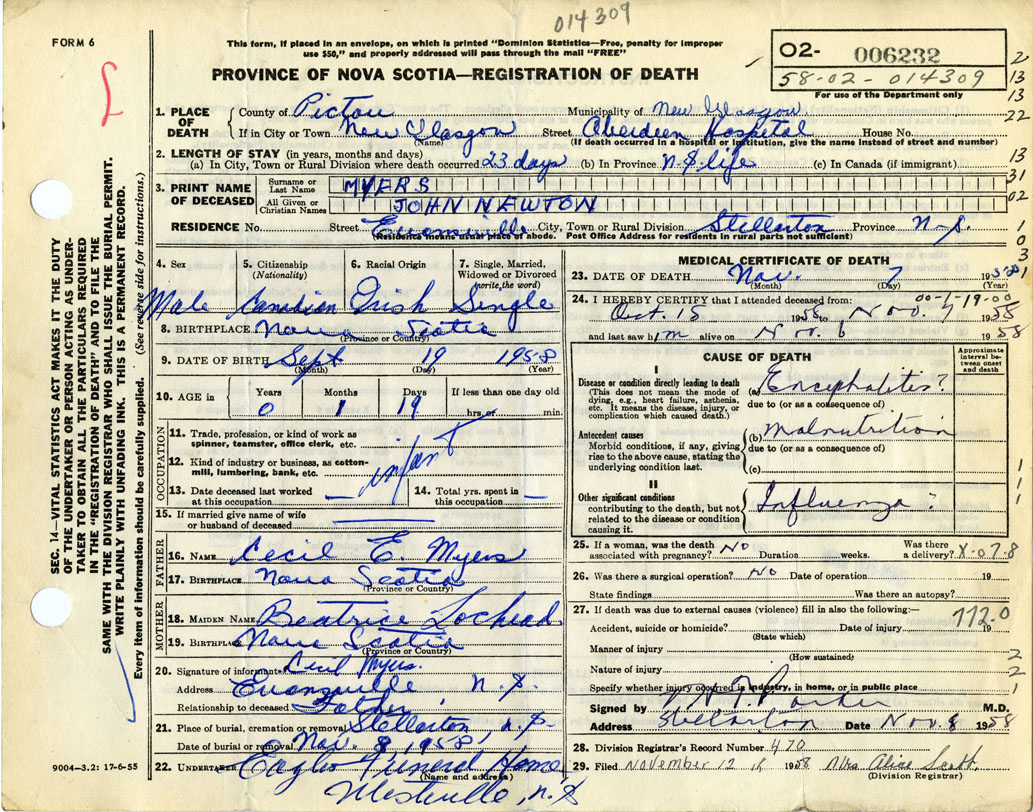 014309
FORM 6
This form, if placed in an envelope, on which is printed "Dominion Statistics—Free, penalty for improper
use $50," and properly addressed will pass through the mail "FREE"
PROVINCE OF NOVA SCOTIA—REGISTRATION OF DEATH
02- 006232
58-02-014309
For use of the Department only
1. PLACE OF DEATH
County of Pictou Municipality of New Glasgow
If in City or Town New Glasgow Street Aberdeen Hospital House No.
(Name) (If death occurred in a hospital or institution, give the name instead of street and number)
2. LENGTH OF STAY (in years, months and days)
(a) In City, Town or Rural Division where death occurred 23 days (b) In Province N.S. life (c) In Canada (if immigrant)
3. PRINT NAME OF DECEASED
Surname or Last Name MYERS
All Given or Christian Names JOHN NEWTON
RESIDENCE No. Street Evansville City, Town or Rural Division Stellarton Province N.S.
(Residence means usual place of abode. Post Office Address for residents in rural parts not sufficient)
4. Sex 5. Citizenship (Nationality) 6. Racial Origin 7. Single, Married, Widowed or Divorced (write the word)
Male Canadian Irish Single
8. BIRTHPLACE Nova Scotia
(Province or Country)
9. DATE OF BIRTH Sept 19 1958
(Month) (Day) (Year)
10. AGE in Years Months Days If less than one day old
0 1 19 hrs. or min.
OCCUPATION
11. Trade, profession, or kind of work as
spinner, teamster, office clerk, etc.
infant
12. Kind of industry or business, as cotton-
mill, lumbering, bank, etc.
13. Date deceased last worked at this occupation —
14. Total yrs. spent in this occupation —
15. If married give name of wife
or husband of deceased
FATHER
16. NAME Cecil E. Myers
17. BIRTHPLACE Nova Scotia
(Province or Country)
MOTHER
18. MAIDEN NAME Beatrice Lochead
19. BIRTHPLACE Nova Scotia
(Province or Country)
20. Signature of informant Cecil Myers.
Address Evansville N.S.
Relationship to deceased Father
21. Place of burial, cremation or removal Stellarton N.S
Date of burial or removal Nov. 8, 1958
22. UNDERTAKER Eagles Funeral Home
(Name and address)
Westville, N.S
MEDICAL CERTIFICATE OF DEATH
23. DATE OF DEATH Nov. 7 1958
(Month) (Day) (Year)
24. I HEREBY CERTIFY that I attended deceased from: 00-1-19-00
Oct. 15 1958 to Nov. 7 1958
and last saw him alive on Nov. 6 1958
CAUSE OF DEATH
Approximate interval between onset and death
I
Disease or condition directly leading to death
(This does not mean the mode of
dying, e.g., heart failure, asthenia,
etc. It means the disease, injury, or
complication which caused death.)
(a) Encephalites?
due to (or as a consequence of)
Antecedent causes
Morbid conditions, if any, giving
rise to the above cause, stating the
underlying condition last.
(b) Malnutrition
due to (or as a consequence of)
(c)
II
Other significant conditions
contributing to the death, but not
related to the disease or condition
causing it.
Influenza?
25. If a woman, was the death
associated with pregnancy? NO Duration weeks. Was there a delivery? X-07-8
26. Was there a surgical operation? NO Date of operation 19
State findings Was there an autopsy?
27. If death was due to external causes (violence) fill in also the following:—
772.0
Accident, suicide or homicide? Date of injury 19
(State which)
Manner of injury
(How sustained)
Nature of injury
Specify whether injury occurred in industry, in home, or in public place
Signed by Parker M.D.
Address Stellarton Date Nov. 8 1958
28. Division Registrar's Record Number 470
29. Filed November 12th 1958 Mrs Alice Scott.
(Division Registrar)
2
13
13
22
13
31
02
1
0
3
1
1
1
1
2
2
1
SEC. 14—VITAL STATISTICS ACT MAKES IT THE DUTY
OF THE UNDERTAKER OR PERSON ACTING AS UNDER-
TAKER TO OBTAIN ALL THE PARTICULARS REQUIRED
IN THE "REGISTRATION OF DEATH" AND TO FILE THE
SAME WITH THE DIVISION REGISTRAR WHO SHALL ISSUE THE BURIAL PERMIT.
WRITE PLAINLY WITH UNFADING INK. THIS IS A PERMANENT RECORD.
Every item of information should be carefully supplied. (See reverse side for instructions.)
9004-3.2: 17-6-55